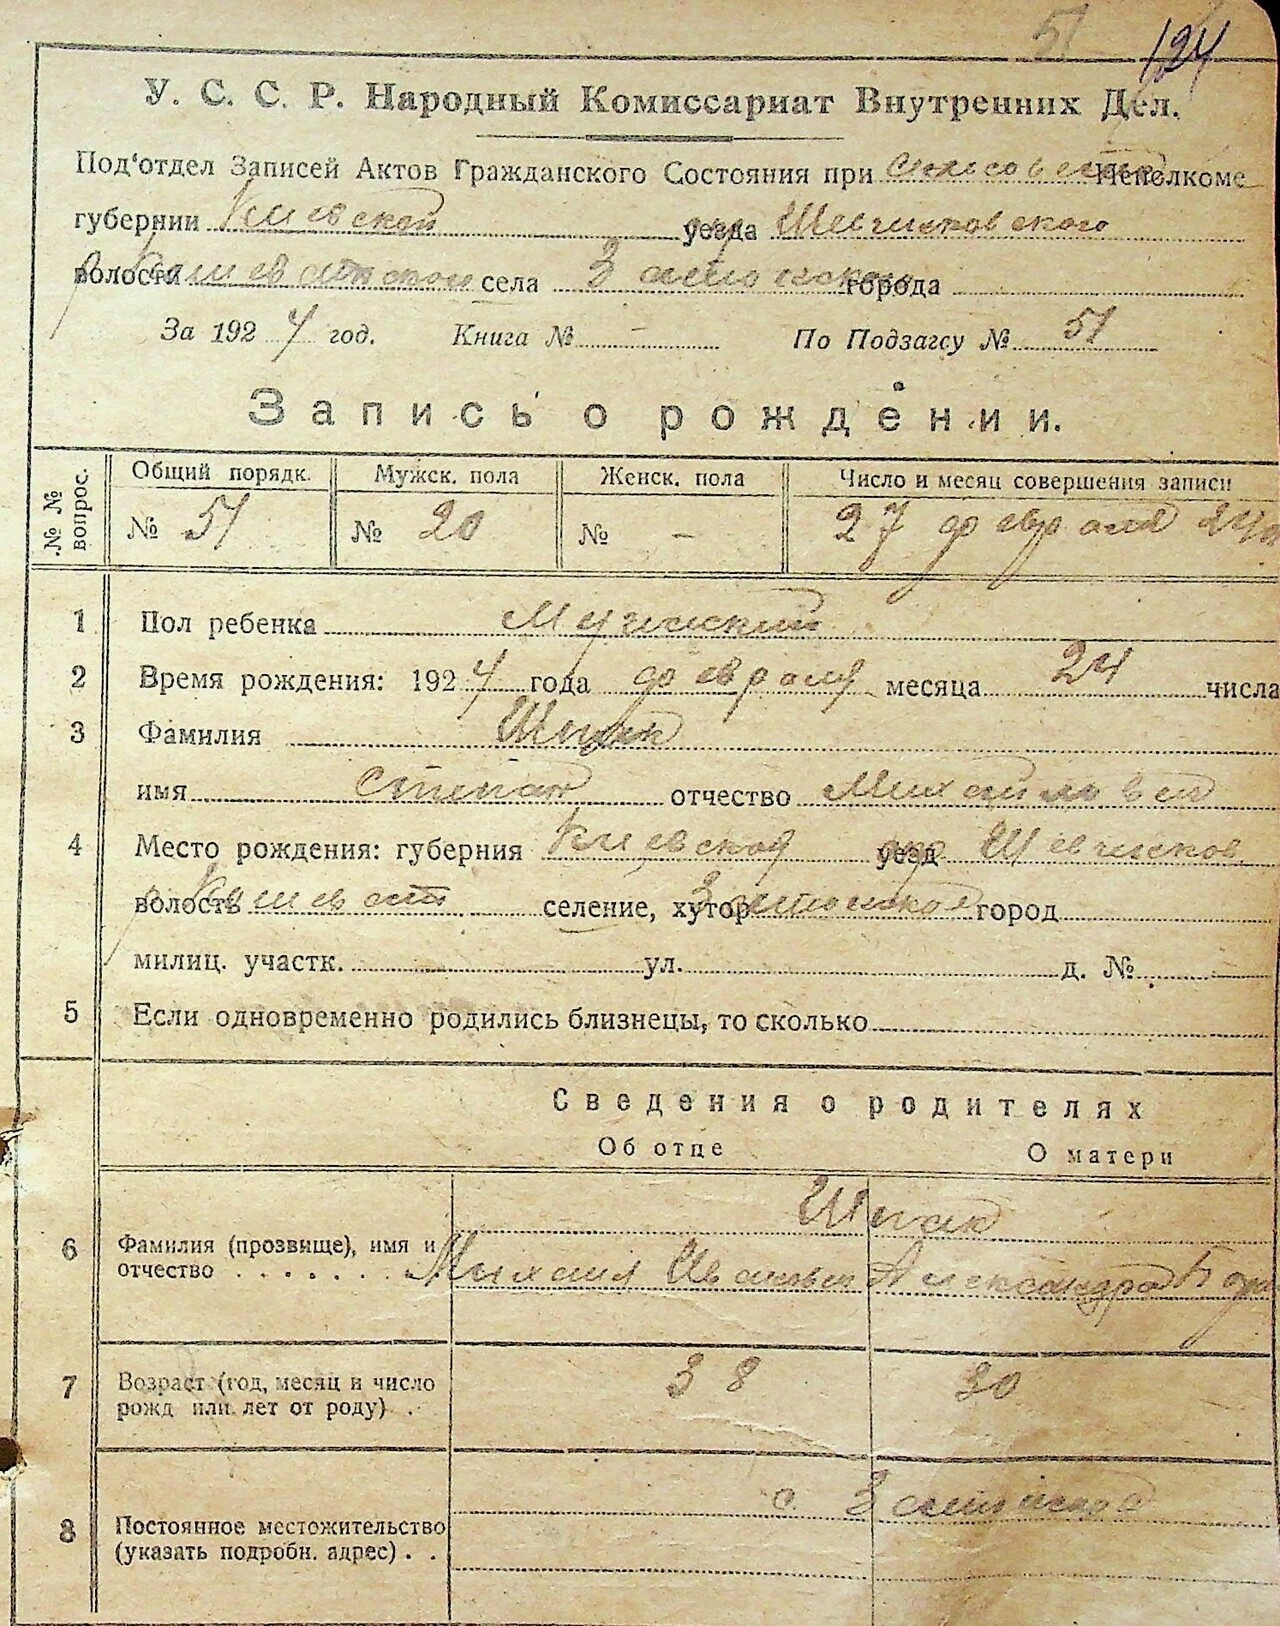 51 124
У. С. С. Р. Народный Комиссариат Внутренних Дел.
Под'отдел Записей Актов Гражданского Состояния при сельсовета Исполкоме
губернии Киевской уезда Шевченковского
волости села города
За 1924 год. Книга № - По Подзагсу № 51
Запись о рождении.
№ № вопрос. Общий порядк. Мужск. пола Женск. пола Число и месяц совершения записи
№ 51 № 20 № - 27 февраля 24
1 Пол ребенка Мужский
2 Время рождения: 1924 года февраля месяца 24 числа
3 Фамилия Шпак
имя Степан отчество Михайлович
4 Место рождения: губерния Киевской уезд Шевченков
волость селение, хутор город
милиц. участк. ул. д. №
5 Если одновременно родились близнецы, то сколько
Сведения о родителях
Об отце О матери
Шпак
6 Фамилия (прозвище), имя и
отчество . . . . . . . Михаил Иванович Александра
7 Возраст (год, месяц и число
рожд или лет от роду) . 38 30
с.
8 Постоянное местожительство
(указать подробн. адрес) . .